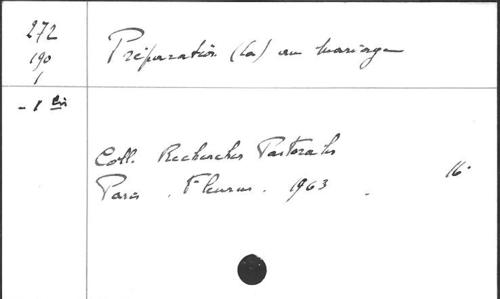 272
190
1
- 1 bis
Préparation (La) au mariage
Coll. Recherches Pastorales
Paris . Fleurus . 1963 . 16°